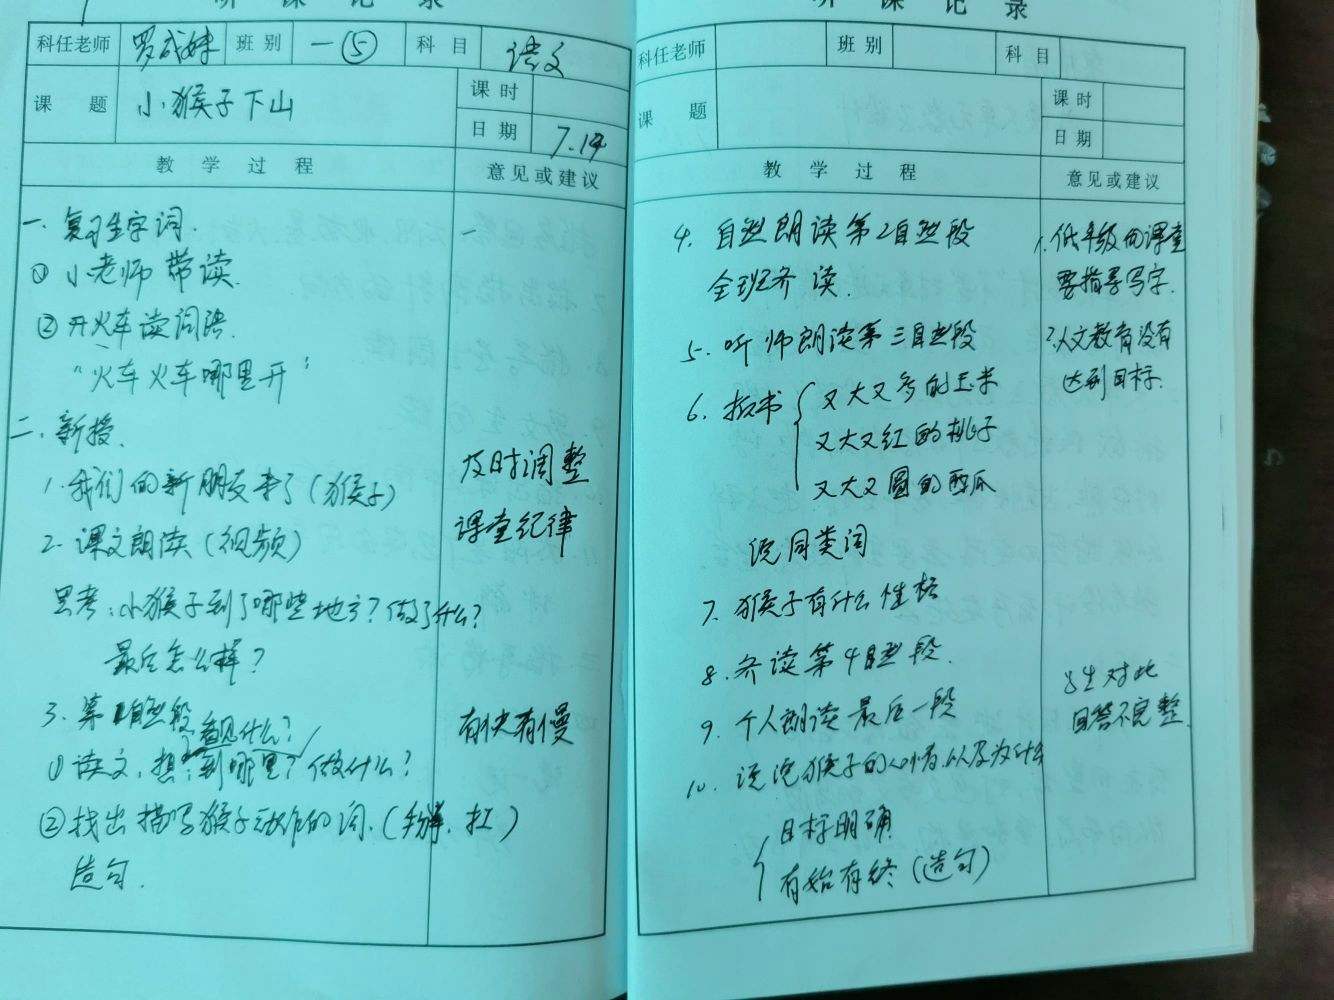 听课记录
科任老师 罗成妹 班别 一⑤ 科目 语文
课题 小猴子下山 课时
日期 7.14
教学过程 意见或建议
一、复习生字词.
① 小老师带读.
② 开火车读词语.
“火车火车哪里开”
二、新授.
1. 我们的新朋友来了(猴子)
2. 课文朗读(视频)
思考:小猴子到了哪些地方?做了什么?
最后怎么样?
3. 第1自然段
看见什么?
① 读文,想:到哪里?做什么?
② 找出描写猴子动作的词.(掰、扛)
造句.
及时调整
课堂纪律
有快有慢
听课记录
科任老师 班别 科目
课题 课时
日期
教学过程 意见或建议
4. 自然朗读第2自然段
全班齐读.
5. 听师朗读第三自然段
6. 板书 又大又多的玉米
又大又红的桃子
又大又圆的西瓜
说同类词
7. 猴子有什么性格
8. 齐读第4自然段.
9. 个人朗读最后一段
10. 说说猴子的心情以及为什么
目标明确
有始有终(造句)
1. 低年级的课堂
要指导写字.
2. 人文教育没有
达到目标.
学生对此
回答不完整.